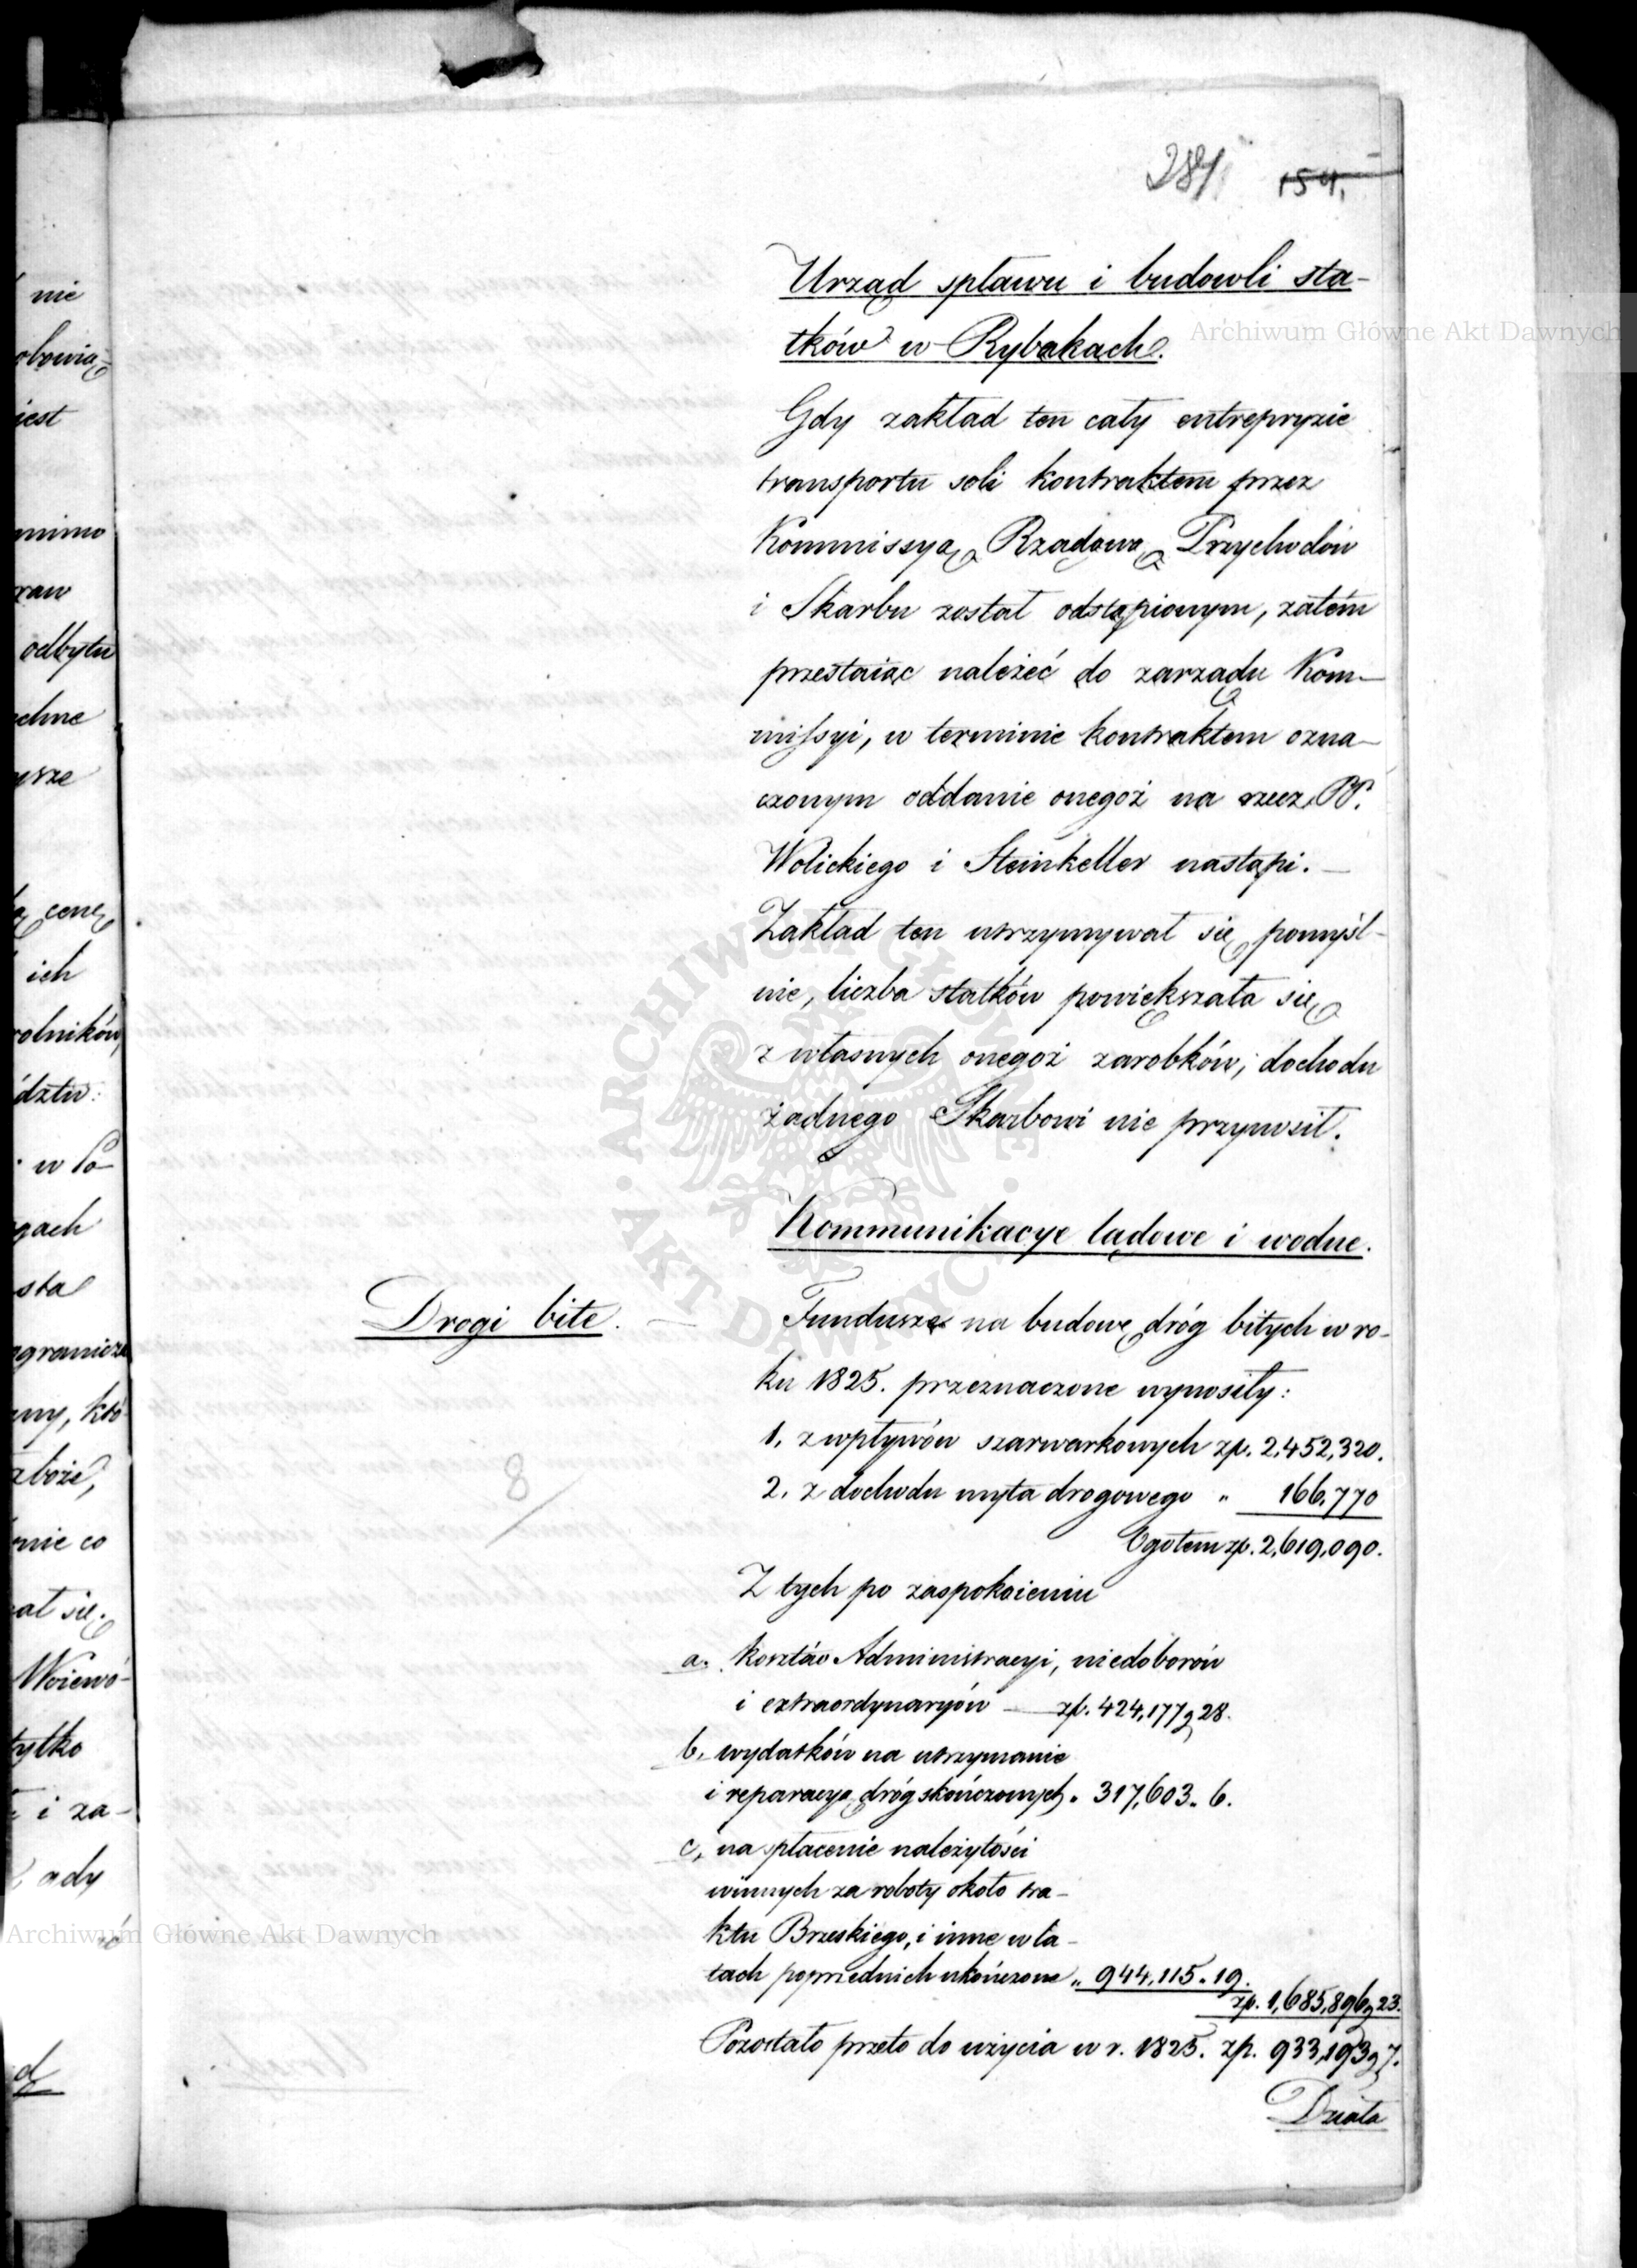 281 154.
Urząd spławu i budowli sta-
tków w Rybakach.
Gdy zakład ten cały entrepryzie
transportu soli kontraktem przez
Kommissyą Rządową Przychodów
i Skarbu został odstąpionym, zatém
przestaiąc należeć do zarządu Kom-
missyi, w terminie kontraktem ozna-
czonym oddanie onegoż na rzecz PP.
Wolickiego i Steinkeller nastąpi. —
Zakład ten utrzymywał się pomyśl-
nie, liczba statków powiększała się
z własnych onegoż zarobków, dochodu
żadnego Skarbowi nie przynosił.
Kommunikacye lądowe i wodne.
Drogi bite. — Fundusze na budowę dróg bitych w ro-
ku 1825. przeznaczone wynosiły:
1. z wpływów szarwarkowych zp. 2,452,320.
2. z dochodu myta drogowego " 166,770
Ogołem zp. 2,619,090.
Z tych po zaspokoieniu
a. kosztów Administracyi, niedoborów
i extraordynaryów — zp. 424,177 g 28.
b. wydatków na utrzymanie
i reparacyą dróg skończonych " 317,603 " 6.
c, na płacenie należytości
winnych za roboty około tra-
ktu Brzeskiego, i inne w la-
tach poprzednich ukończone " 944,115 " 19.
zp. 1,685,896 g 23.
Pozostało przeto do użycia w r. 1825. zp. 933,193 g 7.
Działa
8
nie
obowią-
iest
mimo
odbytu
cenę
ich
rolników,
w Po-
gach
sta
zboże,
nie co
ał się.
Woiewó-
tylko
i za-
gdy
Archiwum Główne Akt Dawnych
Archiwum Główne Akt Dawnych
ARCHIWUM GŁÓWNE AKT DAWNYCH